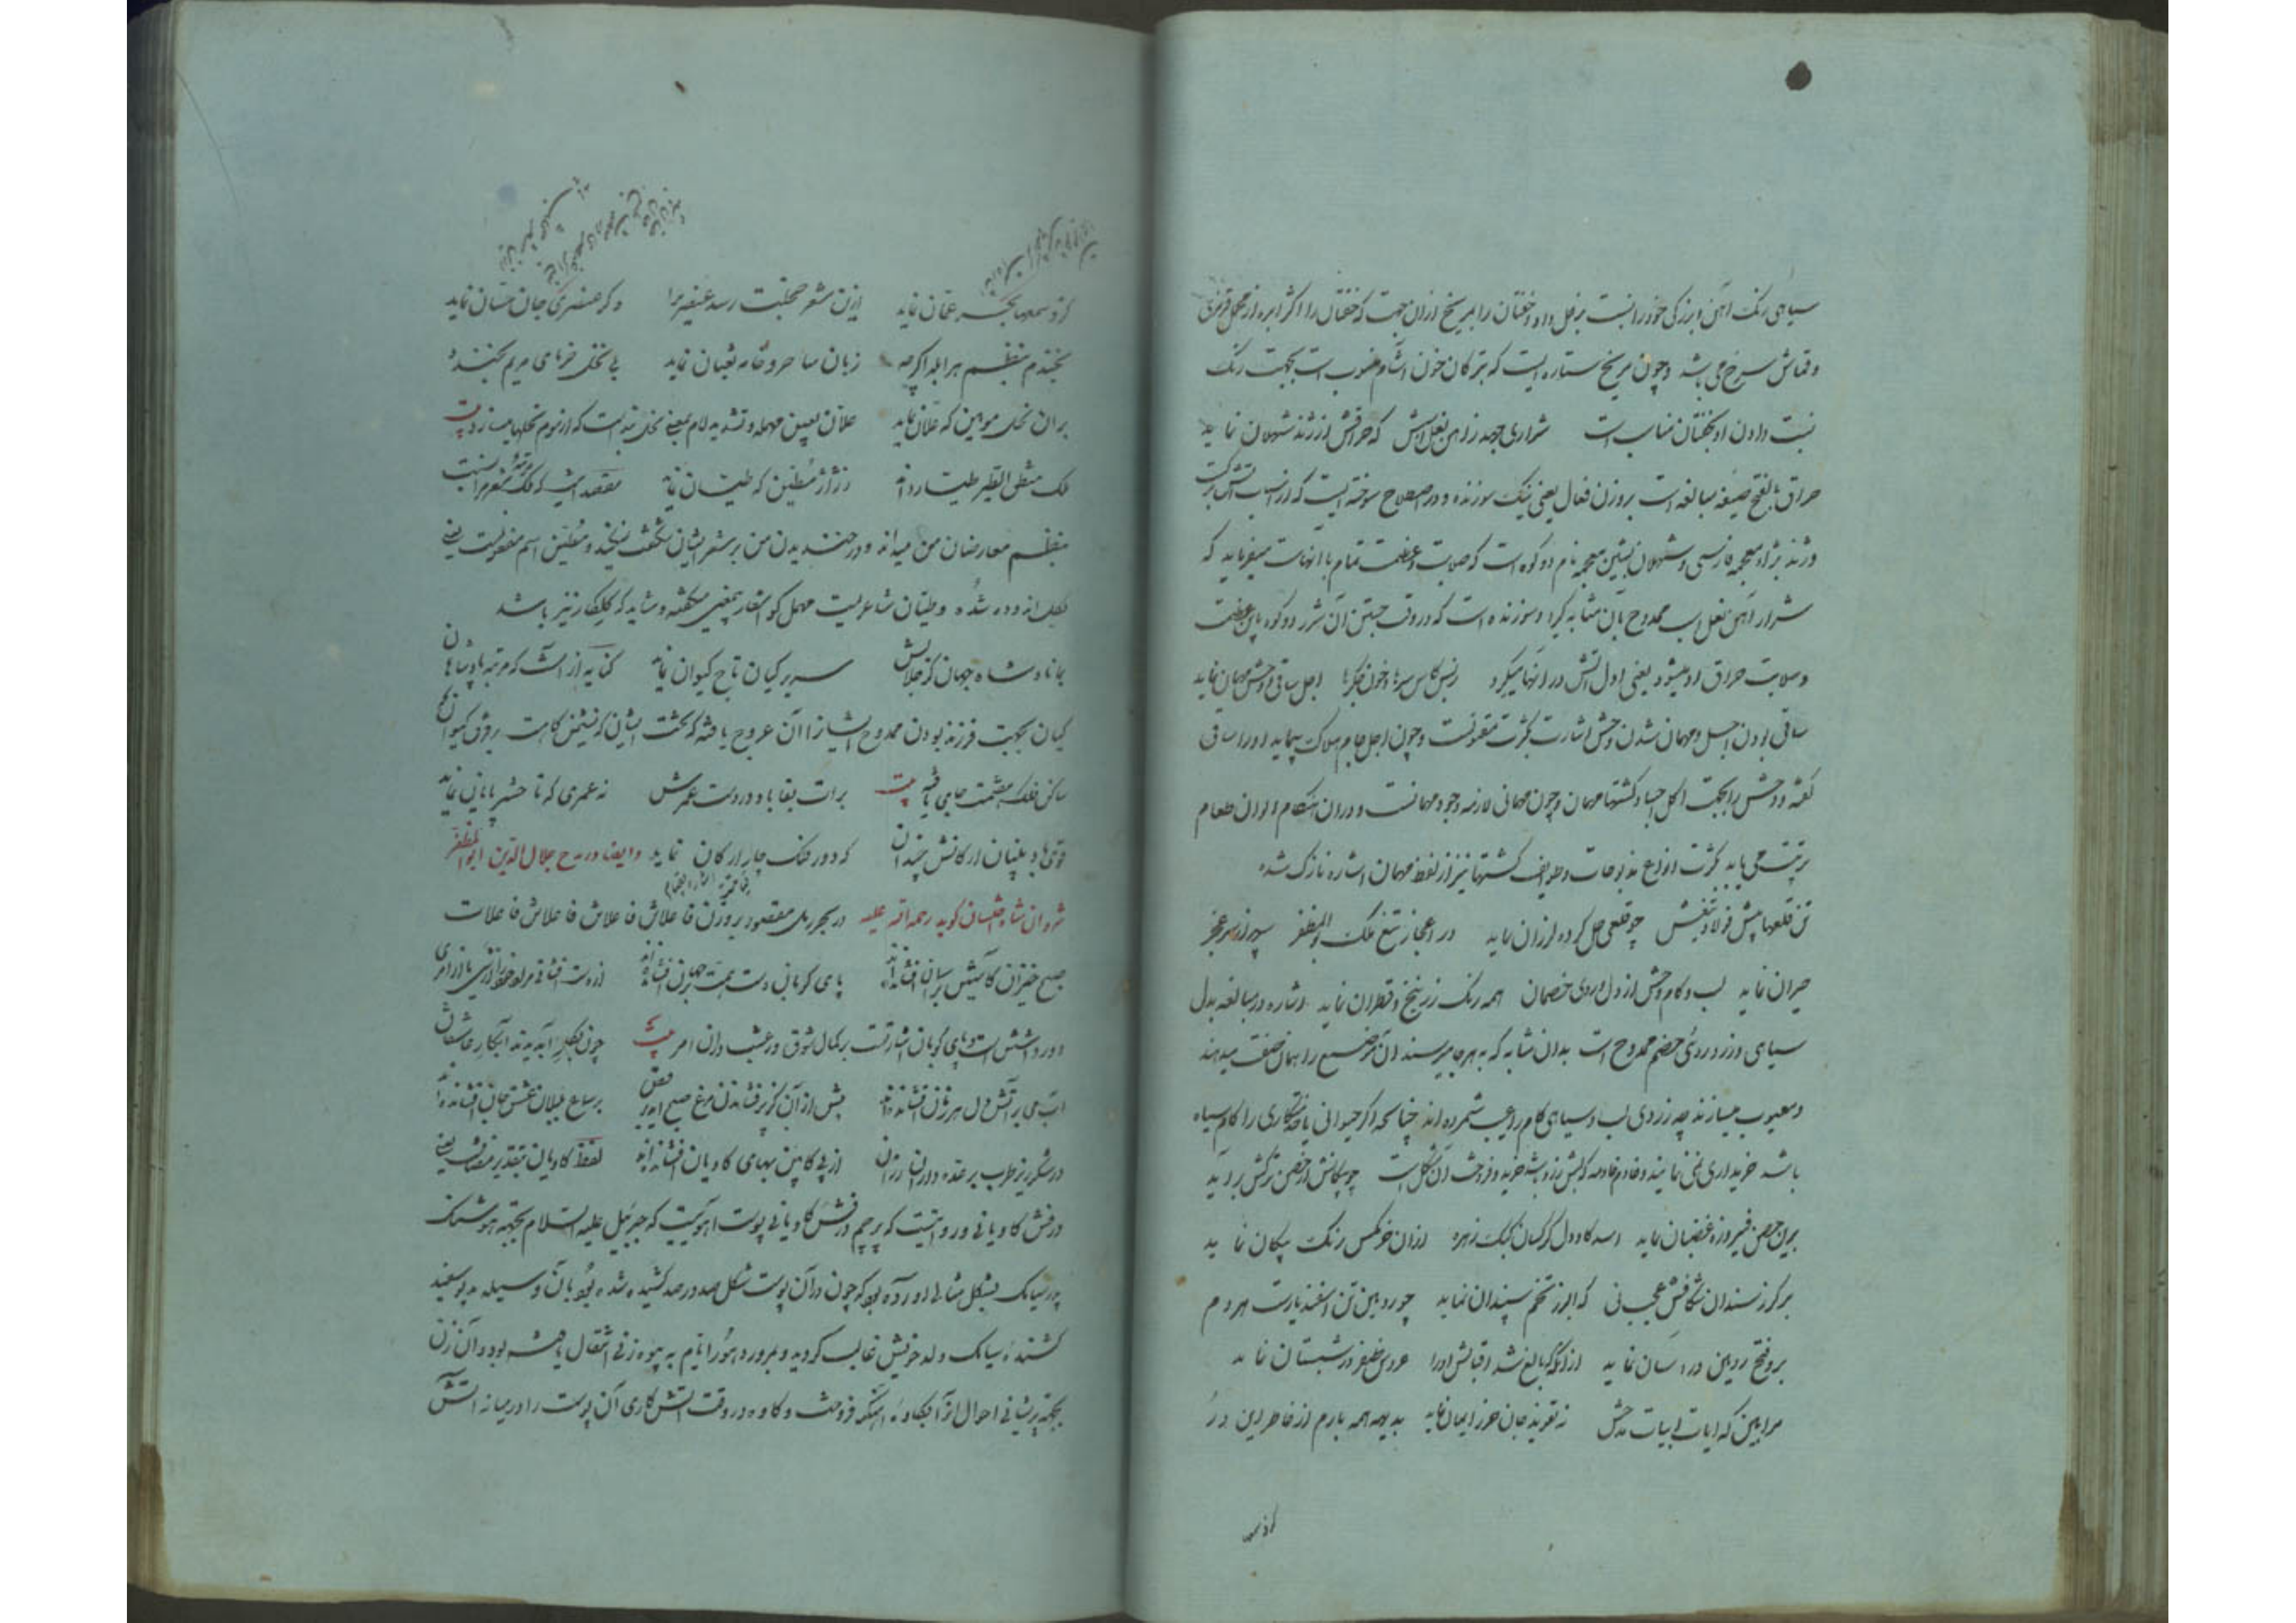 سیاهی رنک آهن و بزرکی خود را نسبت بزحل داد و خفتان را بمریخ ازان جهت که خفتان را اکثر ابره از مخمل قرمزی
و قماش سرخ می باشد و چون مریخ ستاره ایست که بترکان خون آشام منسوب است بجهت رنک
نسبت دادن او بخفتان مناسب است شراری جهد زاهن نعل اسش که حراقش از ژند شهلان نماید
حراق بالفتح صیغه مبالغه است بروزن فعال یعنی نیک سوزنده و در اصطلاح سوخته ایست که از اسباب آتش برکت
و ژند بزاء معجمه فارسی و شهلان بشین معجمه نام دو کوه است که صلابت و عظمت تمام با انهاست میفرماید که
شرار آهن نعل اسب ممدوح بآن مثابه کیرا و سوزنده است که در وقت جستن آن شرر دو کوه باین عظمت
و صلابت حراق او میشود یعنی اول آتش در انها میکیرد زبس کاس سرها و خون جکرها اجل ساقی و وحش مهمان نماید
ساقی بودن اجل و مهمان شدن وحش اشارت بکثرت مقتولست و چون اجل جام هلاک پیماید او را ساقی
کفته و وحش را بجهت اکل اجساد کشتها مهمان و چون مهمانی لازمه وجود مهمانست و در آن هنکام الوان طعام
ترتیب می یابد بکثرت انواع مذبوحات و طوایف کشتها نیز از لفظ مهمان اشاره نازک شده
تن قلعها پیش فولاد تیغش چو قلعی حل کرده لرزان نماید در اعجاز تیغ ملک بوالمظفر سپهر از سر عجز
حیران نماید لب و کام وحش از دل و روی خصمان همه رنک زرنیخ و قطران نماید اشاره در مبالغه بدل
سیاهی و زرد روئی خصم ممدوح است بدان مثابه که بهر جا میرسند آن موضع را همان صفت میدهند
و معیوب میسازند چه زردی لب و سیاهی کام را عیب شمرده اند چنانکه اکر حیوانی یا خدمتکاری را کام سیاه
باشد خریداری نمی نمایند و خادم و خادمه که لبش زرد باشد خرید و فروخت آن مشکل است چو پیکانش از حصن ترکش برآید
برین حصن فیروزه غضبان نماید اسد کاو دل کرکسان کبک زهره ازان خرمکس رنک پیکان نماید
بر کرز سندان شکافش عجب نی که البرز تخم سپندان نماید چو رویین تن اسفندیارست هر دم
برو فتح رویین دز اسان نماید از آنکه که بالغ شد اقبالش اورا عروس ظفر در شبستان نماید
مرا بین که ایات ابیات مدحش نه تعویذ جان حرز ایمان نماید بدیهه همه بارم از خاطر این در
کزو سمعها بحر عمان نماید ازین شعر خجلت رسد عنصری را و کر عنصری جان حسان نماید
بخندم بنظم هر ابله اکرچه زبان ساحر و خامه ثعبان نماید بی نخل خرمای مریم بخندد
بران نخل مومین که علان نماید علان بعین مهمله و تشدید لام بمعنی نخل بندست که از موم نخلها میسازد بیت
ملک منطق الطیر طیار داند ز ژاژ مطین که طیان نماید مقصد آنست که ملک مرتبه شعر مرا نسبت
بنظم معارضان من میداند و در خندیدن من بر شعر ایشان شکفت نیاید و مطین اسم مفعولست یعنی
بکل اندوده شده و طیان شاعریست مهمل کو اشعار بیمعنی میکفته و شاید که کلکار نیز باشد
بماناد شاه جهان کز جلالش سریر کیان تاج کیوان نماید کنایه از آنست که مرتبه پادشاهان
کیان بجهت فرزند بودن ممدوح ایشانرا آن عروج یافته که تخت ایشان که نشیمن کاهست بر فرق کیوان که
ساکن فلک هفتمست جای یافته بیت برات بقا باد در دست عمرش نه عمری که تا حشر پایان نماید
قوی باد بنیان ارکانش چندان که دور فلک چار ارکان نماید وایضا در مدح جلال الدین ابوالمظفر
شروان شاه اخستان کوید رحمه الله علیه در بحر رمل مقصور بروزن فاعلاتن فاعلاتن فاعلاتن فاعلات
صبح خیزان کاستین بر آسمان افشانده اند پای کوبان دست همت بر جهان افشانده اند
ابی بر آتش دل هر زمان افشانده اند پیش از آن کز پر فشاندن مرغ صبح آید برقص بر سماع بلبلان عشق جان افشانده اند
در شکر ریز طرب بر عقده دوران از پی کابین بهای کاویان افشانده اند لفظ کاویان بتقدیر مضافست یعنی
درفش کاویانی و روایتیست که پرچم درفش کاویانی پوست آهوییست که جبرئیل علیه السلام بجهة هوشنک
پور سیامک بشکل مثالی اورده بود که چون در آن پوست شکل صد در صد کشیده شده بود بآن وسیله دیو سفید
کشندهٔ سیامک ولد خویش غالب کردید و بمرور دهور و ایام به بیوه زنی انتقال یافته بود و آن زن
بجهة پریشانی احوال انرا بکاوهٔ آهنکر فروخت و کاوه در وقت آتش کاری آن پوست را در میانه آتش